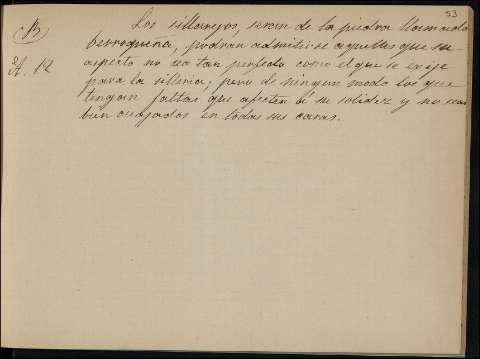 53
B
Los sillarejos, seran de la piedra llamada
berroqueña, podran admitirse aquellos que su
A. 12
aspecto no sea tan perfecto como el que se exije
para la silleria; pero de ningun modo los que
tengan faltas que afecten á su solidez y no sean
bien acojados en todas sus caras.